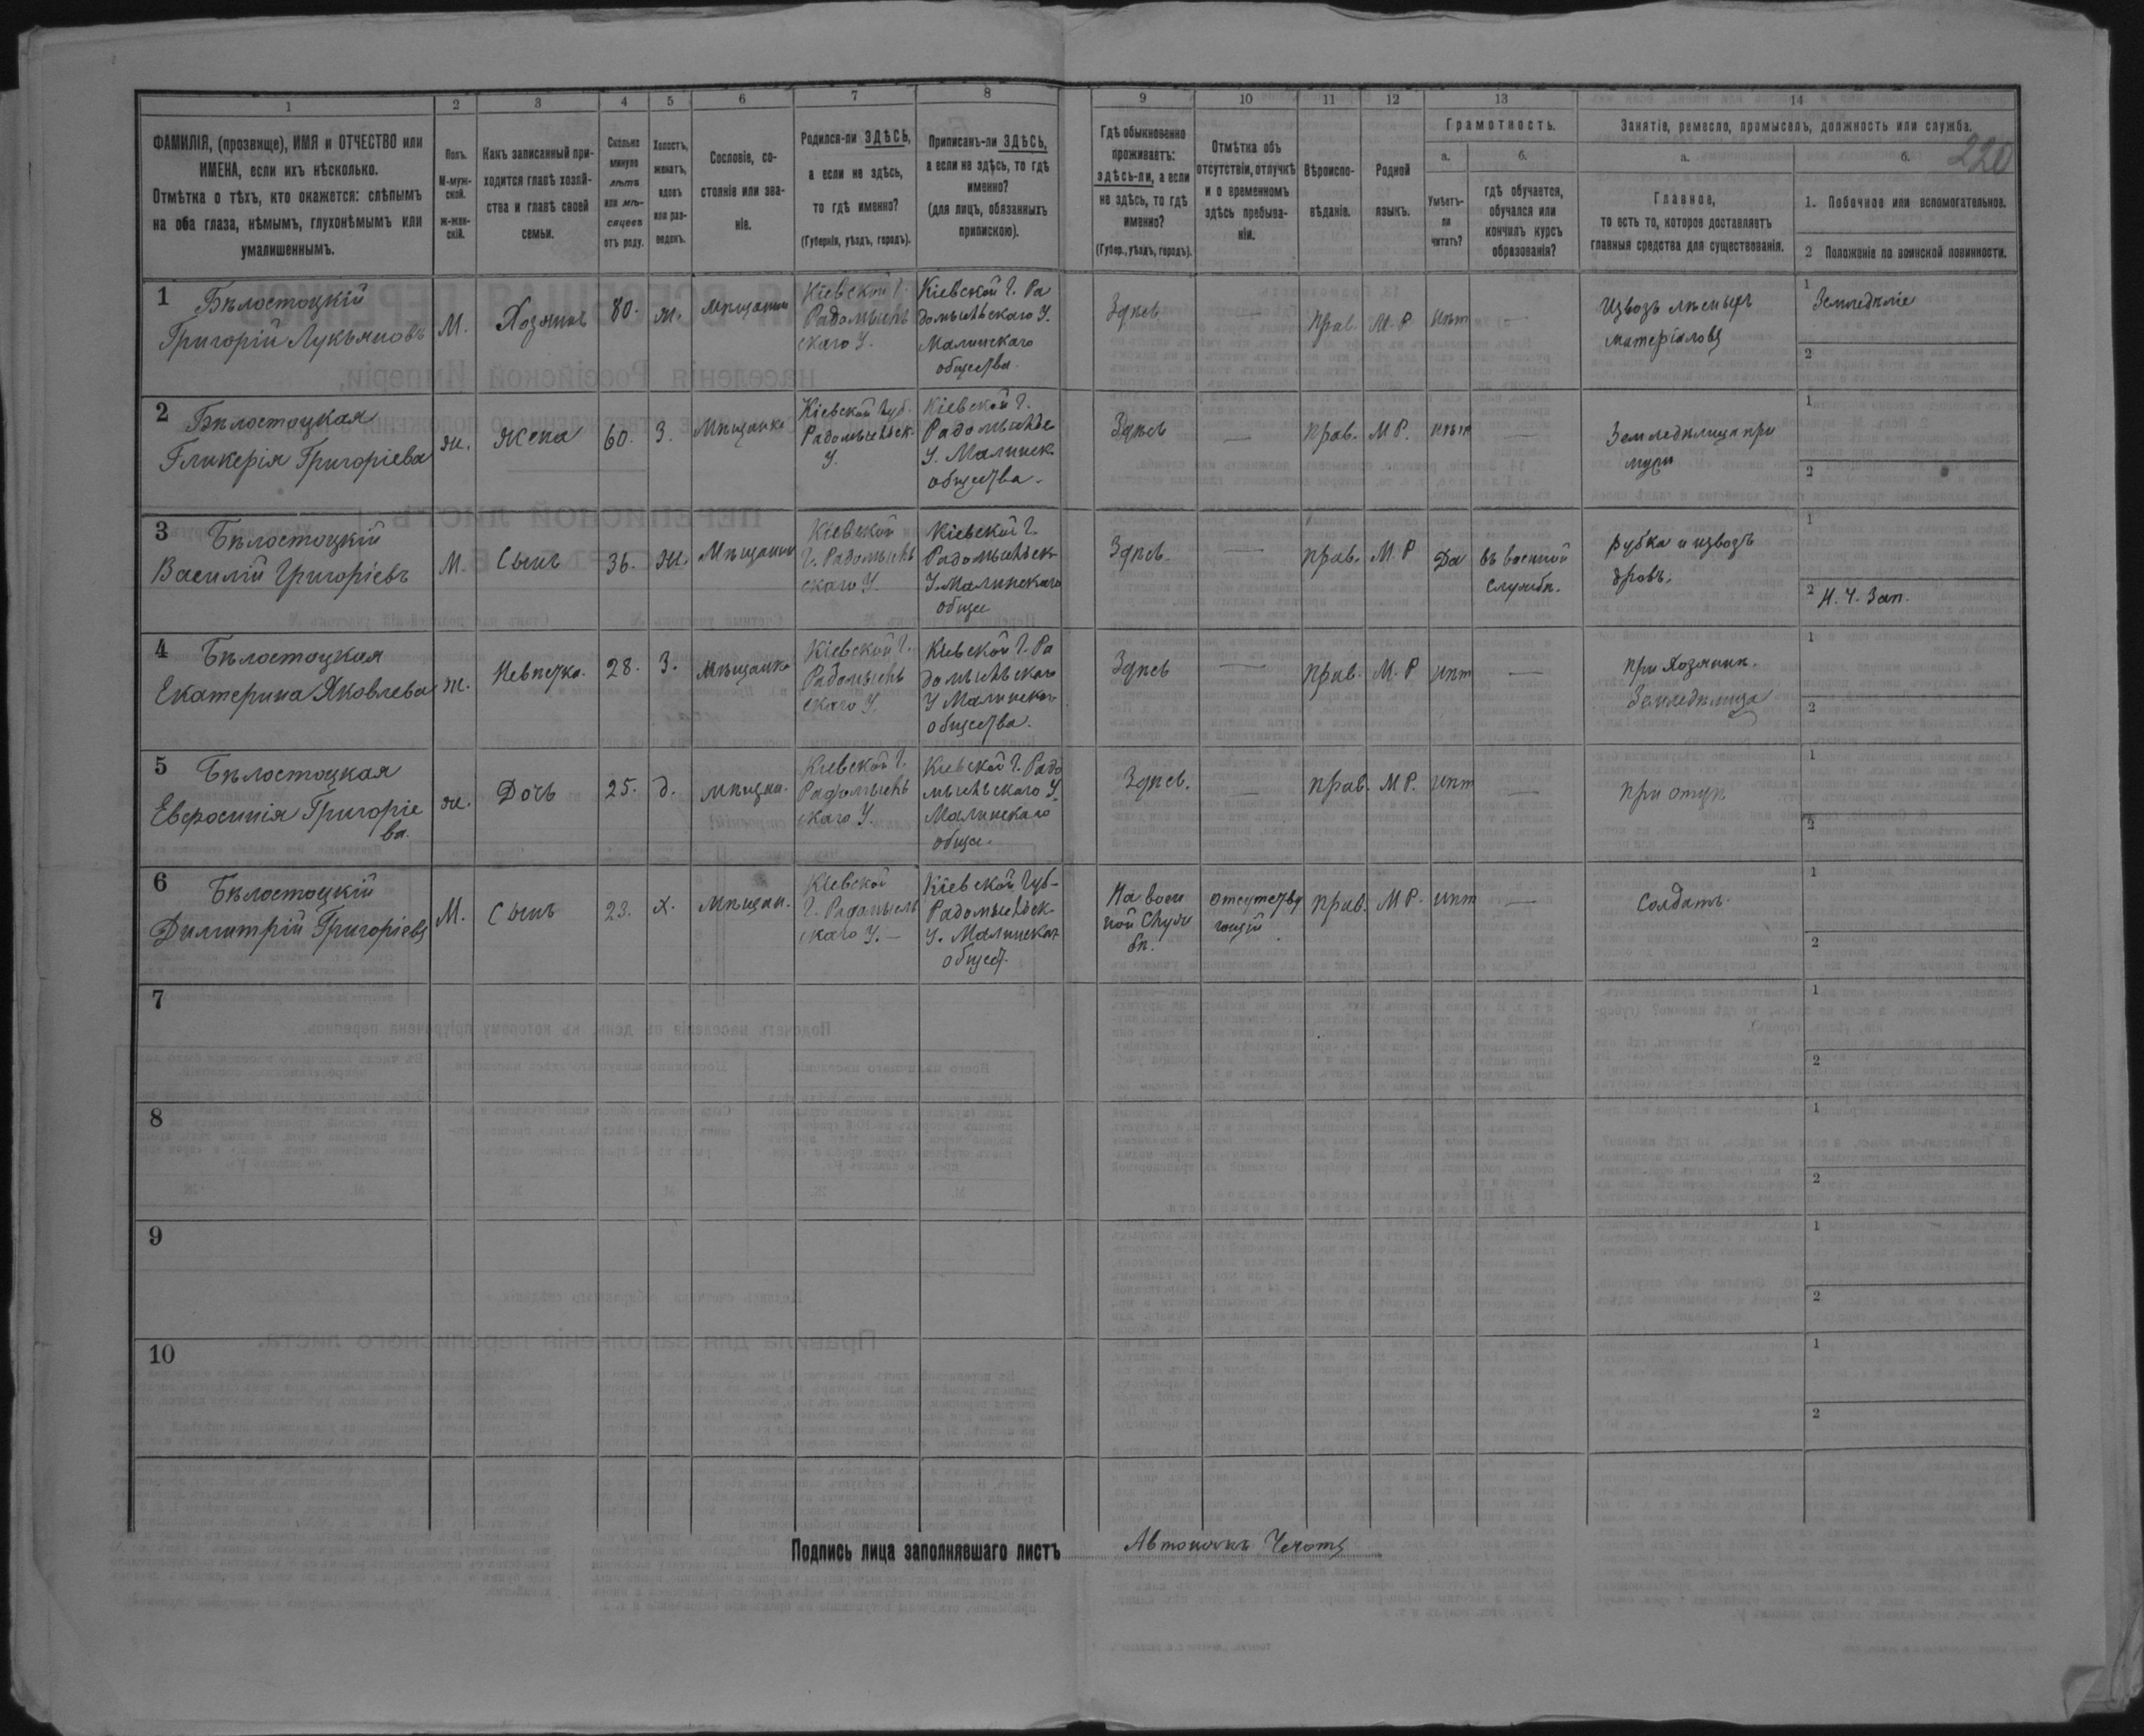 1
2
3
4
5
6
7
8
9
10
11
12
13
14
ФАМИЛІЯ, (прозвище), ИМЯ и ОТЧЕСТВО или
ИМЕНА, если ихъ нѣсколько.
Отмѣтка о тѣхъ, кто окажется: слѣпымъ
на оба глаза, нѣмымъ, глухонѣмымъ или
умалишеннымъ.
Полъ.
М-муж-
ской.
ж-жен-
скій.
Какъ записанный при-
ходится главѣ хозяй-
ства и главѣ своей
семьи.
Сколько
минуло
лѣтъ
или мѣ-
сяцевъ
отъ роду.
Холостъ,
женатъ,
вдовъ
или раз-
веденъ.
Сословіе, со-
стояніе или зва-
ніе.
Родился-ли ЗДѢСЬ,
а если не здѣсь,
то гдѣ именно?
(Губернія, уѣздъ, городъ).
Приписанъ-ли ЗДѢСЬ,
а если не здѣсь, то гдѣ
именно?
(для лицъ, обязанныхъ
припискою).
Гдѣ обыкновенно
проживаетъ:
здѣсь-ли, а если
не здѣсь, то гдѣ
именно?
(Губер., уѣздъ, городъ).
Отмѣтка объ
отсутствіи, отлучкѣ
и о временномъ
здѣсь пребыва-
ніи.
Вѣроиспо-
вѣданіе.
Родной
языкъ.
Грамотность.
а.
Умѣетъ-
ли
читать?
б.
гдѣ обучается,
обучался или
кончилъ курсъ
образованія?
Занятіе, ремесло, промыселъ, должность или служба.
220
а.
Главное,
то есть то, которое доставляетъ
главныя средства для существованія.
б.
1. Побочное или вспомогательное.
2 Положеніе по воинской повинности.
1
Бѣлостоцкій
Григорій Лукьяновъ
М.
Хозяинъ
80.
ж.
мѣщанин
Кіевской Г.
Радомыль
скаго У.
Кіевской Г. Ра
домыльскаго У.
Малинскаго
общества.
Здѣсь
—
прав.
М. Р.
нѣт
—
Извозъ лѣсныхъ
матеріаловъ
1
Земледѣліе
2
2
Бѣлостоцкая
Гликерія Григоріева
ж.
жена
60.
З.
Мѣщанка
Кіевской Губ.
Радомыльск.
У.
Кіевской Г.
Радомыльс
У. Малинск.
общества.
Здѣсь
—
прав.
М Р.
нѣт
—
Земледѣлица при
мужи
1
2
3
Бѣлостоцкій
Василій Григоріевъ
М.
Сынъ
36.
Ж.
Мѣщанин
Кіевской
Г. Радомыль
скаго У.
Кіевской Г.
Радомыльск
У. Малинскаго
общес
Здѣсь
—
прав.
М. Р
Да
въ военной
службѣ.
Рубка и извозъ
дровъ.
1
2
Н. Ч. Зап.
4
Бѣлостоцкая
Екатерина Яковлева
ж.
Невѣстка.
28.
З.
мѣщанка
Кіевской Г.
Радомыль
скаго У.
Кіевской Г. Ра
домыльскаго
У Малинскаго
общества.
Здѣсь
—
прав.
М. Р
нѣт
—
при хозяинѣ.
Земледѣлица
1
2
5
Бѣлостоцкая
Евфросинія Григоріе
ва.
ж.
Дочь
25.
д.
мѣщан.
Кіевской Г.
Радомыль
скаго У.
Кіевской Г. Радо
мыльскаго У.
Малинскаго
общес.
Здѣсь.
—
прав.
М Р.
нѣт
—
при отцѣ
1
2
6
Бѣлостоцкій
Димитрій Григоріевъ
М.
Сынъ
23.
х.
Мѣщан.
Кіевской
Г. Радомыль
скаго У. —
Кіевской Губ-
Радомыльск-
У. Малинскаг
общест.
На воен
ной служ
бѣ.
отсутству
ющій
прав.
М Р.
нѣт
—
Солдатъ.
1
2
7
1
2
8
1
2
9
1
2
10
1
2
Подпись лица заполнявшаго листъ